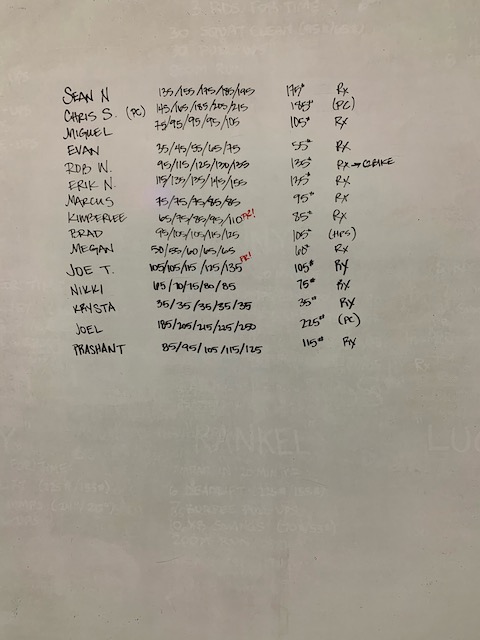 3 RDS FOR TIME
SEAN N 135/155/175/185/195 175# RX
CHRIS S. (PC) 145/165/185/205/215 185# (PC)
MIGUEL 75/95/95/95/105 105# RX
EVAN 35/45/55/65/75 55# RX
ROB W. 95/115/125/130/135 135# RX → C2BIKE
ERIK N. 115/135/135/145/155 135# RX
MARCUS 75/75/75/85/85 95# RX
KIMBERLEE 65/75/85/95/110 PR! 85# RX
BRAD 95/105/105/115/125 105# (HPS)
MEGAN 50/55/60/65/65 60# RX
JOE T. 105/105/115/125/135 PR! 105# RX
NIKKI 65/70/75/80/85 75# RX
KRYSTA 35/35/35/35/35 35# RX
JOEL 185/205/215/225/250 225# (PC)
PRASHANT 85/95/105/115/125 115# RX
RANKEL